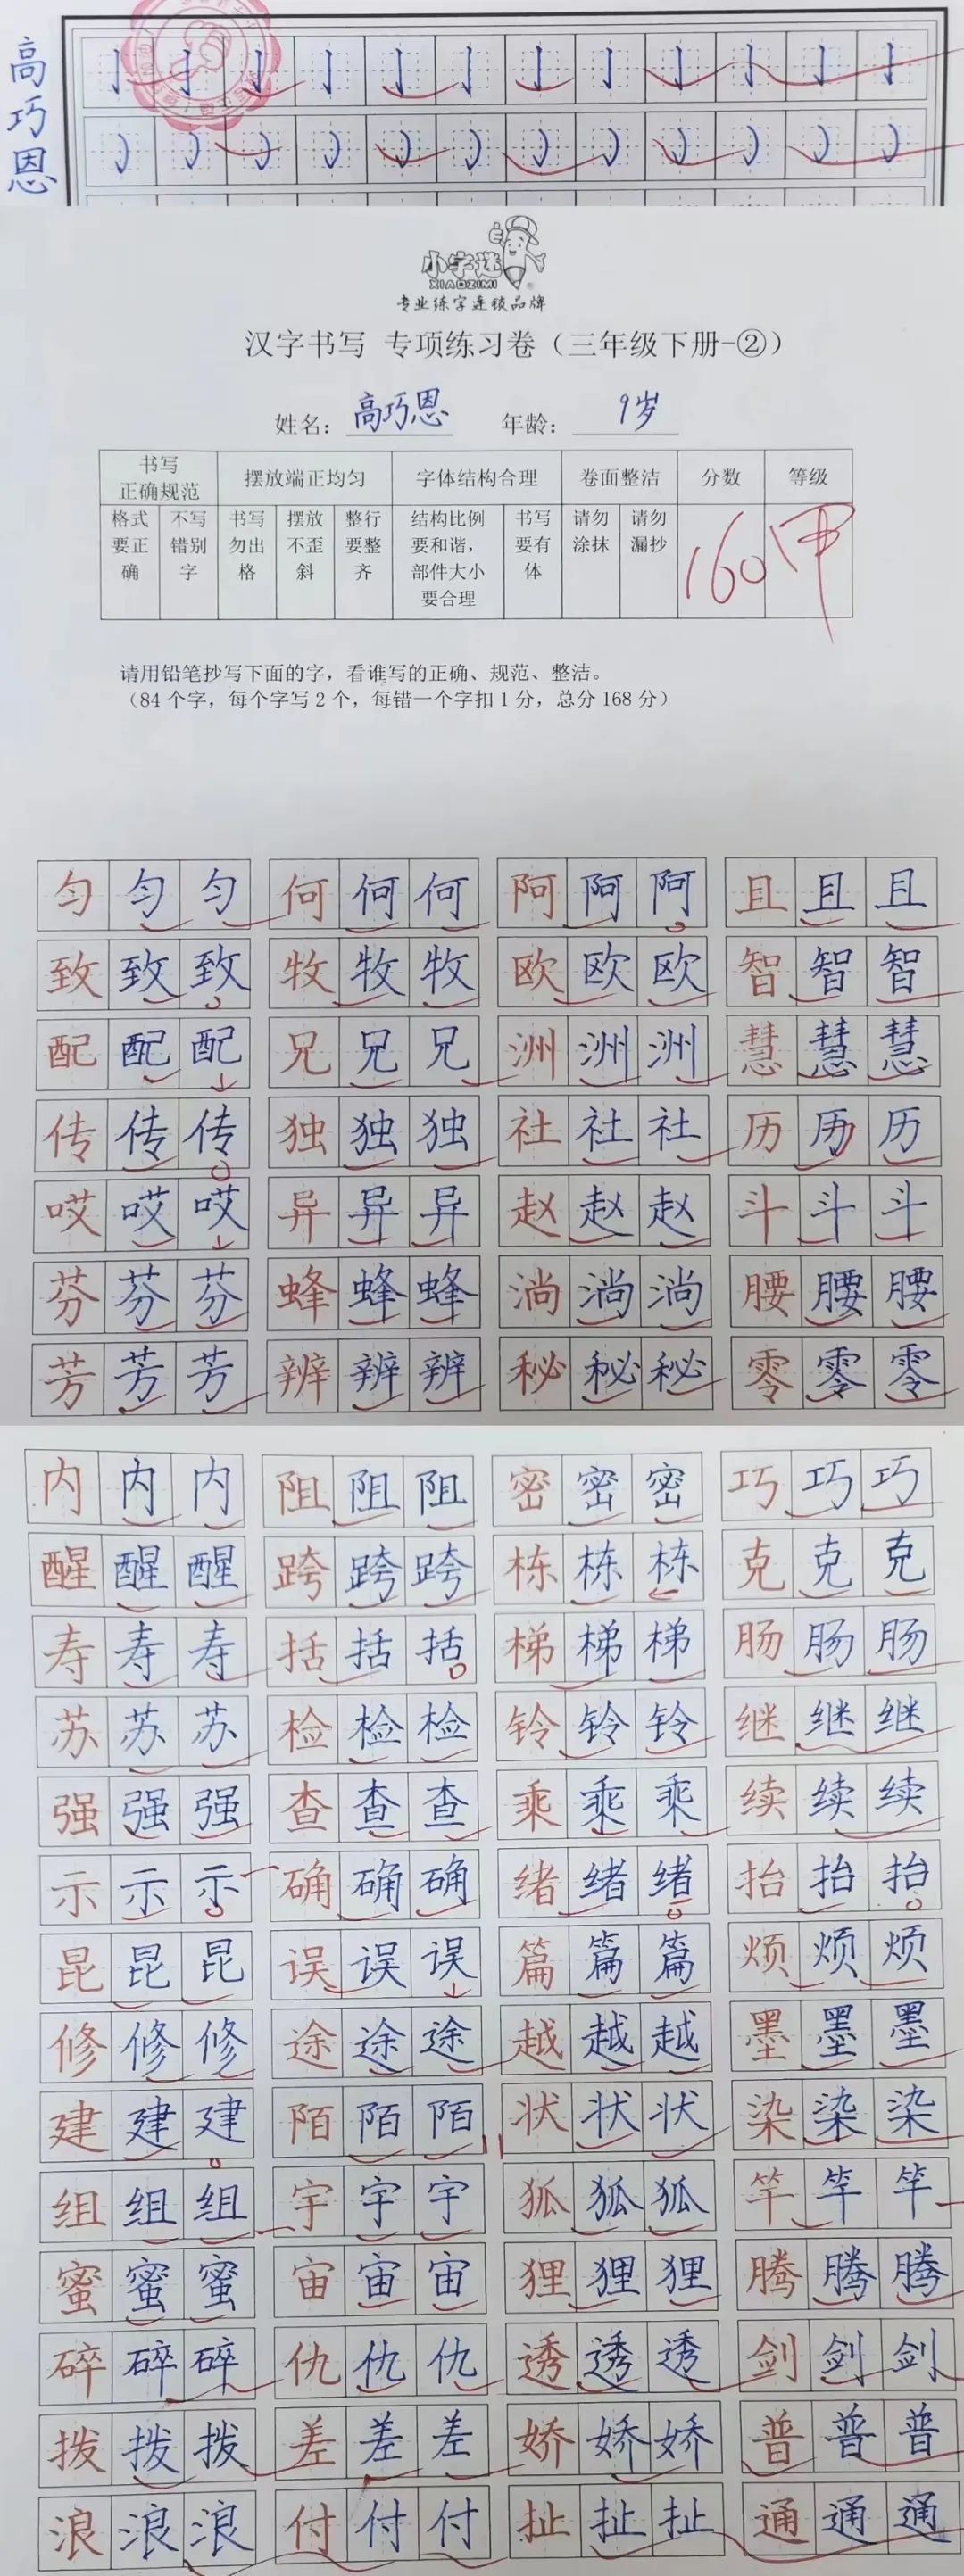 高巧恩
小字迷
XIAOZIMI
专业练字连锁品牌
汉字书写 专项练习卷（三年级下册-②）
姓名：高巧恩 年龄：9岁
书写正确规范 摆放端正均匀 字体结构合理 卷面整洁 分数 等级
格式要正确 不写错别字 书写勿出格 摆放不歪斜 整行要整齐 结构比例要和谐，部件大小要合理 书写要有体 请勿涂抹 请勿漏抄 160 甲
请用铅笔抄写下面的字，看谁写的正确、规范、整洁。
（84个字，每个字写2个，每错一个字扣1分，总分168分）
匀匀匀 何何何 阿阿阿 且且且
致致致 牧牧牧 欧欧欧 智智智
配配配 兄兄兄 洲洲洲 慧慧慧
传传传 独独独 社社社 历历历
哎哎哎 异异异 赵赵赵 斗斗斗
芬芬芬 蜂蜂蜂 淌淌淌 腰腰腰
芳芳芳 辨辨辨 秘秘秘 零零零
内内内 阻阻阻 密密密 巧巧巧
醒醒醒 跨跨跨 栋栋栋 克克克
寿寿寿 括括括 梯梯梯 肠肠肠
苏苏苏 检检检 铃铃铃 继继继
强强强 查查查 乘乘乘 续续续
示示示 确确确 绪绪绪 抬抬抬
昆昆昆 误误误 篇篇篇 烦烦烦
修修修 途途途 越越越 墨墨墨
建建建 陌陌陌 状状状 染染染
组组组 宇宇宇 狐狐狐 竿竿竿
蜜蜜蜜 宙宙宙 狸狸狸 腾腾腾
碎碎碎 仇仇仇 透透透 剑剑剑
拨拨拨 差差差 娇娇娇 普普普
浪浪浪 付付付 扯扯扯 通通通